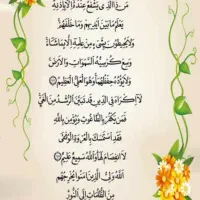 مَن ذَا الَّذِي يَشْفَعُ عِندَهُ إِلَّا بِإِذْنِهِ
يَعْلَمُ مَا بَيْنَ أَيْدِيهِمْ وَمَا خَلْفَهُمْ
وَلَا يُحِيطُونَ بِشَيْءٍ مِنْ عِلْمِهِ إِلَّا بِمَا شَاءَ
وَسِعَ كُرْسِيُّهُ السَّمَوَاتِ وَالْأَرْضَ
وَلَا يَئُودُهُ حِفْظُهُمَا وَهُوَ الْعَلِيُّ الْعَظِيمُ
لَا إِكْرَاهَ فِي الدِّينِ قَد تَبَيَّنَ الرُّشْدُ مِنَ الْغَيِّ
فَمَن يَكْفُرْ بِالطَّاغُوتِ وَيُؤْمِن بِاللَّهِ
فَقَدِ اسْتَمْسَكَ بِالْعُرْوَةِ الْوُثْقَى
لَا انفِصَامَ لَهَا وَاللَّهُ سَمِيعٌ عَلِيمٌ
اللَّهُ وَلِيُّ الَّذِينَ آمَنُوا يُخْرِجُهُم
مِنَ الظُّلُمَاتِ إِلَى النُّورِ